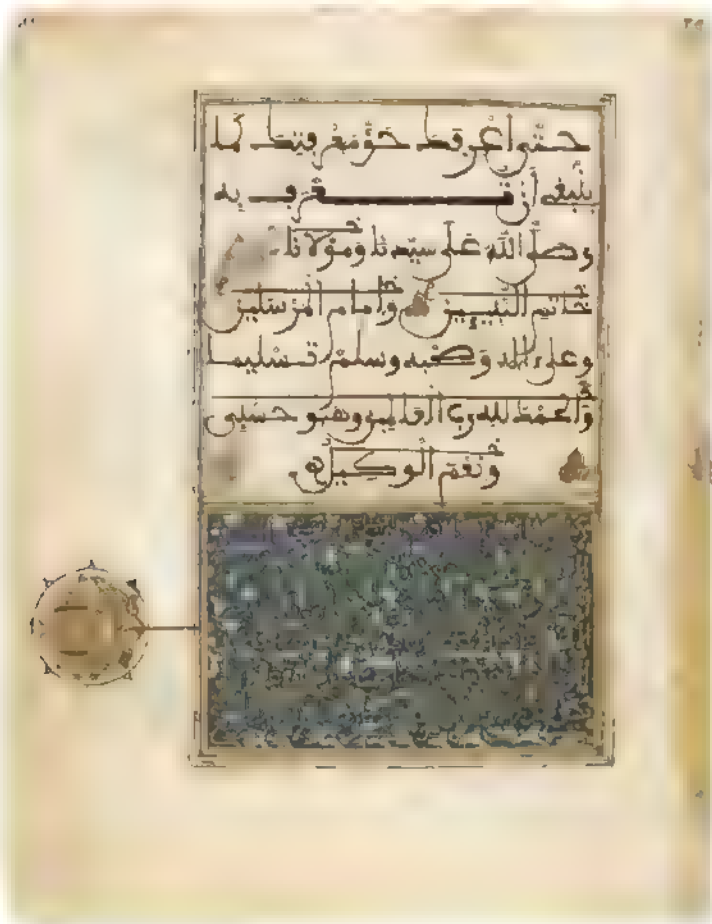 حتى أعرفك حق معرفتك كما
ينبغي أن تعرف به
وصلى الله على سيدنا ومولانا
خاتم النبيين وإمام المرسلين
وعلى اله وصحبه وسلم تسليما
والحمد لله رب العالمين وهو حسبي
ونعم الوكيل